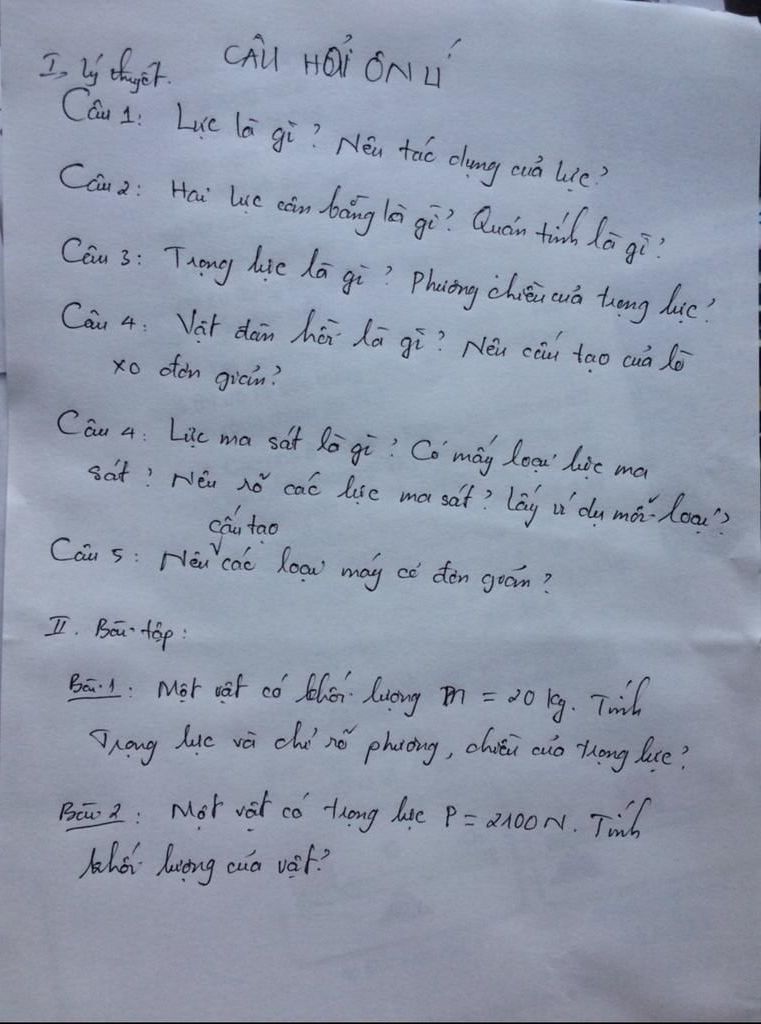 CÂU HỎI ÔN LÍ
I, Lý thuyết.
Câu 1: Lực là gì? Nêu tác dụng của lực?
Câu 2: Hai lực cân bằng là gì? Quán tính là gì?
Câu 3: Trọng lực là gì? Phương chiều của trọng lực?
Câu 4: Vật đàn hồi là gì? Nêu cấu tạo của lò
xo đơn giản?
Câu 4: Lực ma sát là gì? Có mấy loại lực ma
sát? Nêu rõ các lực ma sát? Lấy ví dụ mỗi loại?
cấu tạo
Câu 5: Nêu các loại máy cơ đơn giản?
II. Bài tập:
Bài 1: Một vật có khối lượng m = 20 kg. Tính
Trọng lực và chỉ rõ phương, chiều của trọng lực?
Bài 2: Một vật có trọng lực P = 2100 N. Tính
khối lượng của vật?